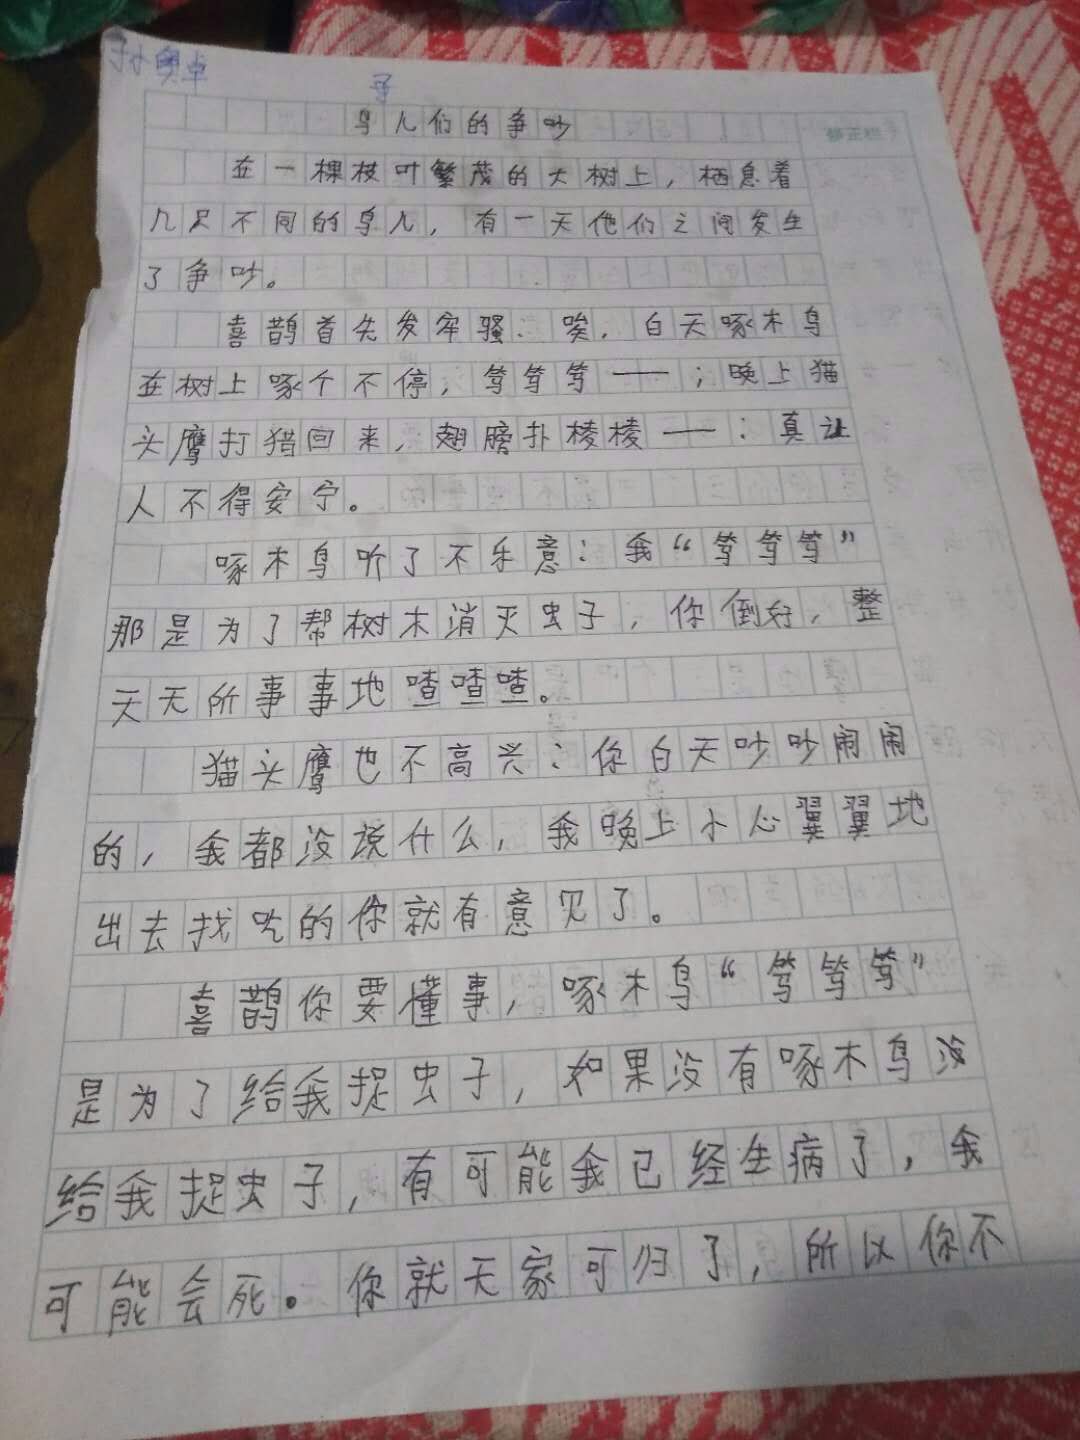 孙奥卓
鸟儿们的争吵
在一棵枝叶繁茂的大树上，栖息着
几只不同的鸟儿，有一天他们之间发生
了争吵。
喜鹊首先发牢骚：唉，白天啄木鸟
在树上啄个不停，笃笃笃——；晚上猫
头鹰打猎回来，翅膀扑棱棱——：真让
人不得安宁。
啄木鸟听了不乐意：我“笃笃笃”
那是为了帮树木消灭虫子，你倒好，整
天无所事事地喳喳喳。
猫头鹰也不高兴：你白天吵吵闹闹
的，我都没说什么，我晚上小心翼翼地
出去找吃的你就有意见了。
喜鹊你要懂事，啄木鸟“笃笃笃”
是为了给我捉虫子，如果没有啄木鸟没
给我捉虫子，有可能我已经生病了，我
可能会死。你就无家可归了，所以你不